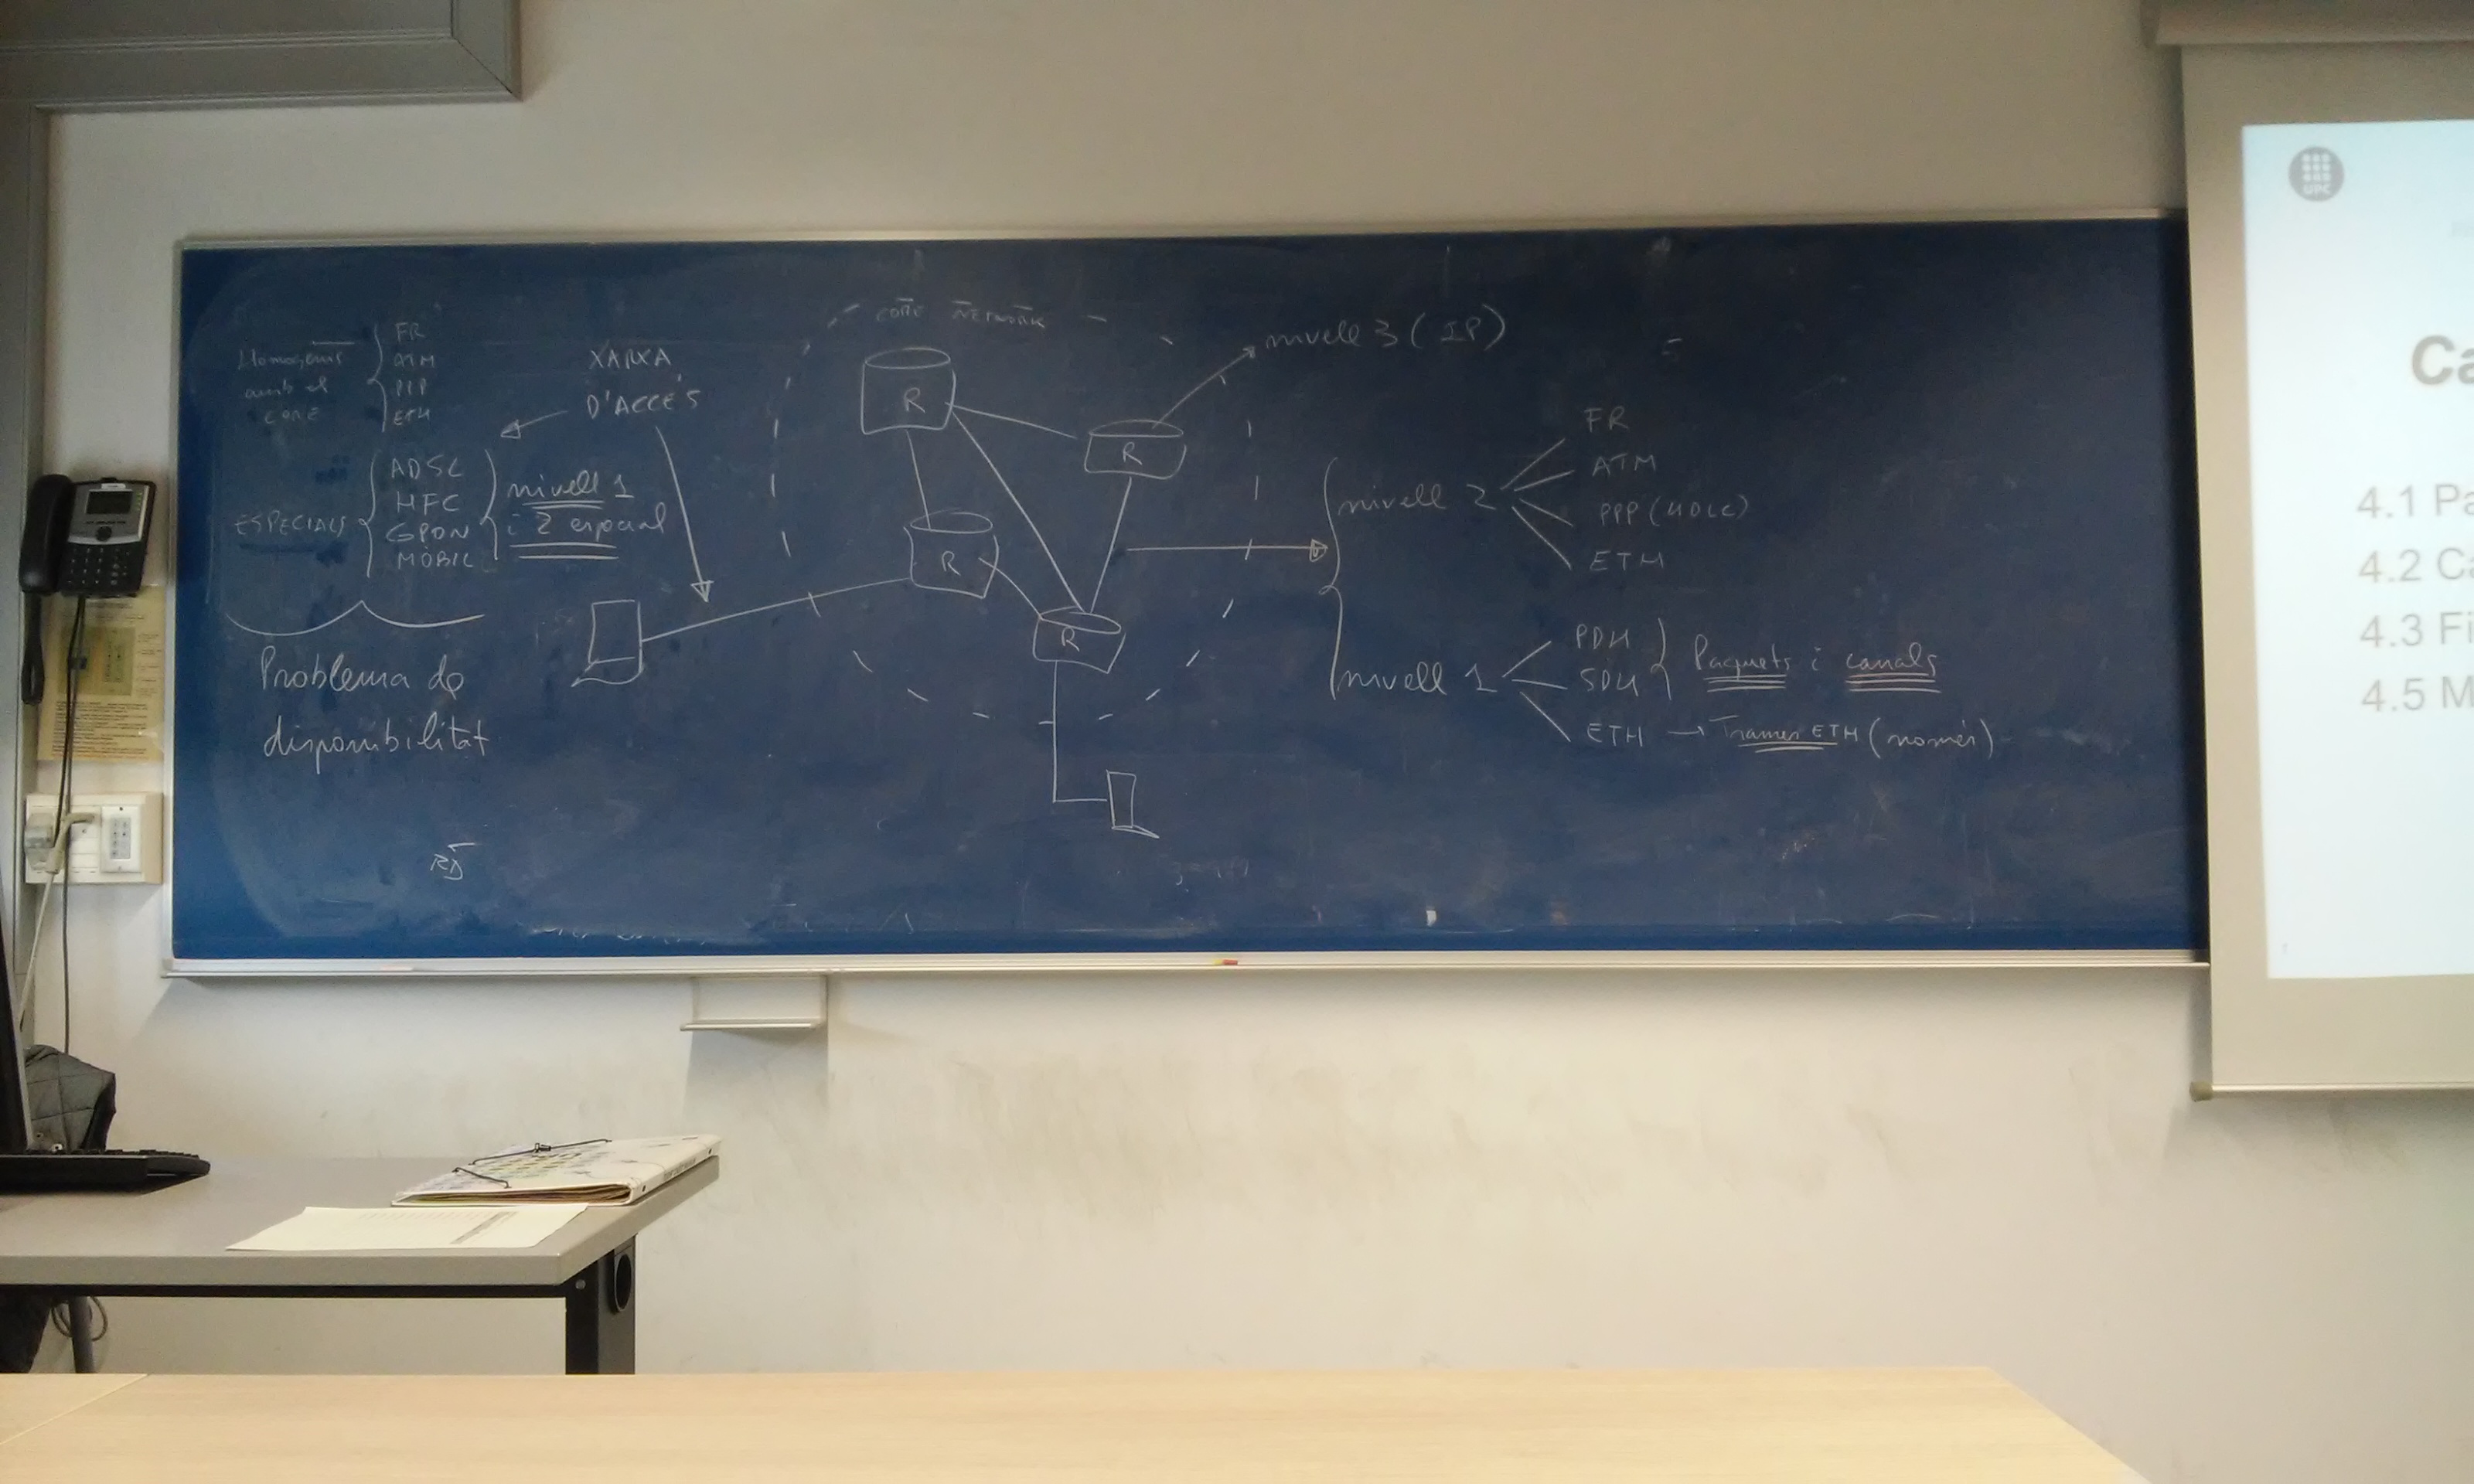 CORE NETWORK
Homogenis
amb el
CORE
FR
ATM
PPP
ETH
XARXA
D'ACCÉS
ESPECIALS
ADSL
HFC
GPON
MÒBIL
nivell 1
i 2 especial
Problema de
disponibilitat
R
R
R
R
nivell 3 (IP)
nivell 2
FR
ATM
PPP (HDLC)
ETH
nivell 1
PDH
SDH
Paquets i canals
ETH → Trames ETH (només)
UPC
Ca
4.1 Pa
4.2 Ca
4.3 Fi
4.5 M